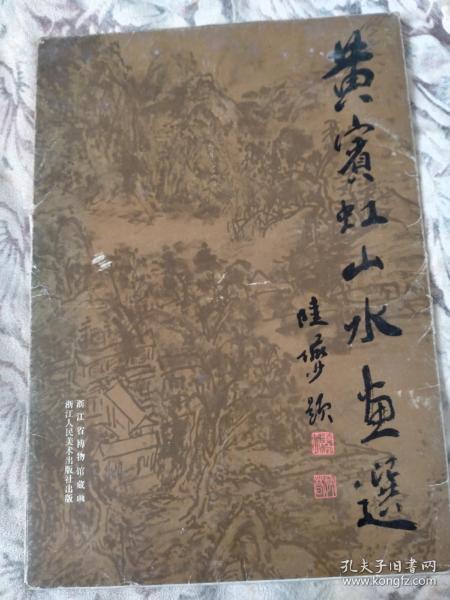 黄宾虹山水画選
陆俨少题
浙江省博物馆藏画
浙江人民美术出版社出版
孔夫子旧书网
www.kongfz.com